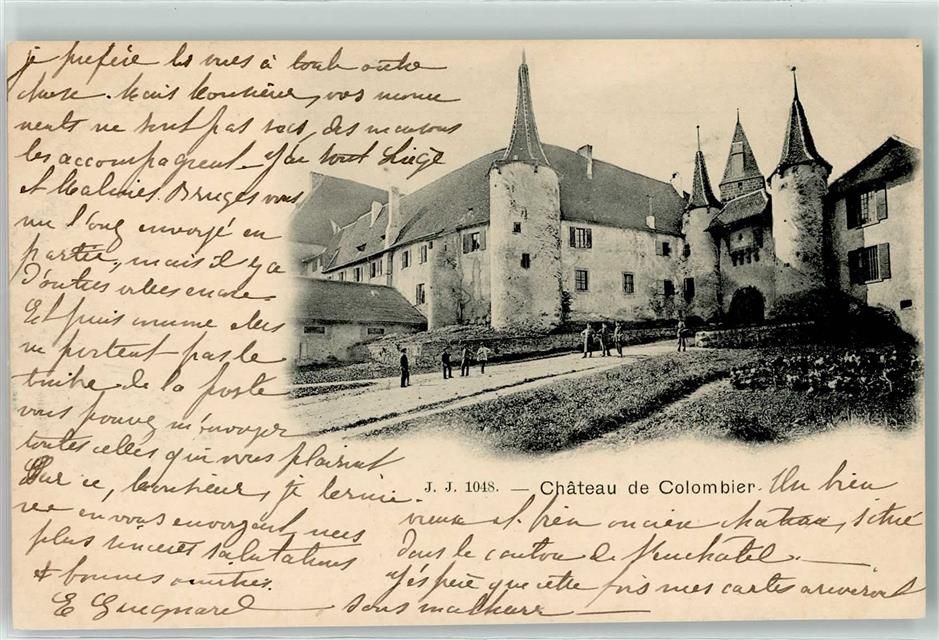 je préfère les vues à toute autre
chose. Mais Monsieur, vos monu
ments ne sont pas secs, des maisons
les accompagnent. J'ai tout Liège
et Malines. Bruges vous
me l'avez envoyé en
partie, mais il y a
d'autres villes encore
Et puis comme elles
ne portent pas le
timbre de la poste
vous pouvez m'envoyer
toutes celles qui vous plairont
Sur ce, Monsieur, je termi
ne en vous envoyant mes
plus sincères salutations
& bonnes amitiés.
E Guignard
J. J. 1048. — Château de Colombier. Un bien
vieux et bien ancien château, situé
dans le canton de Neuchâtel.
J'espère que cette fois mes cartes arriveront
sans malheur